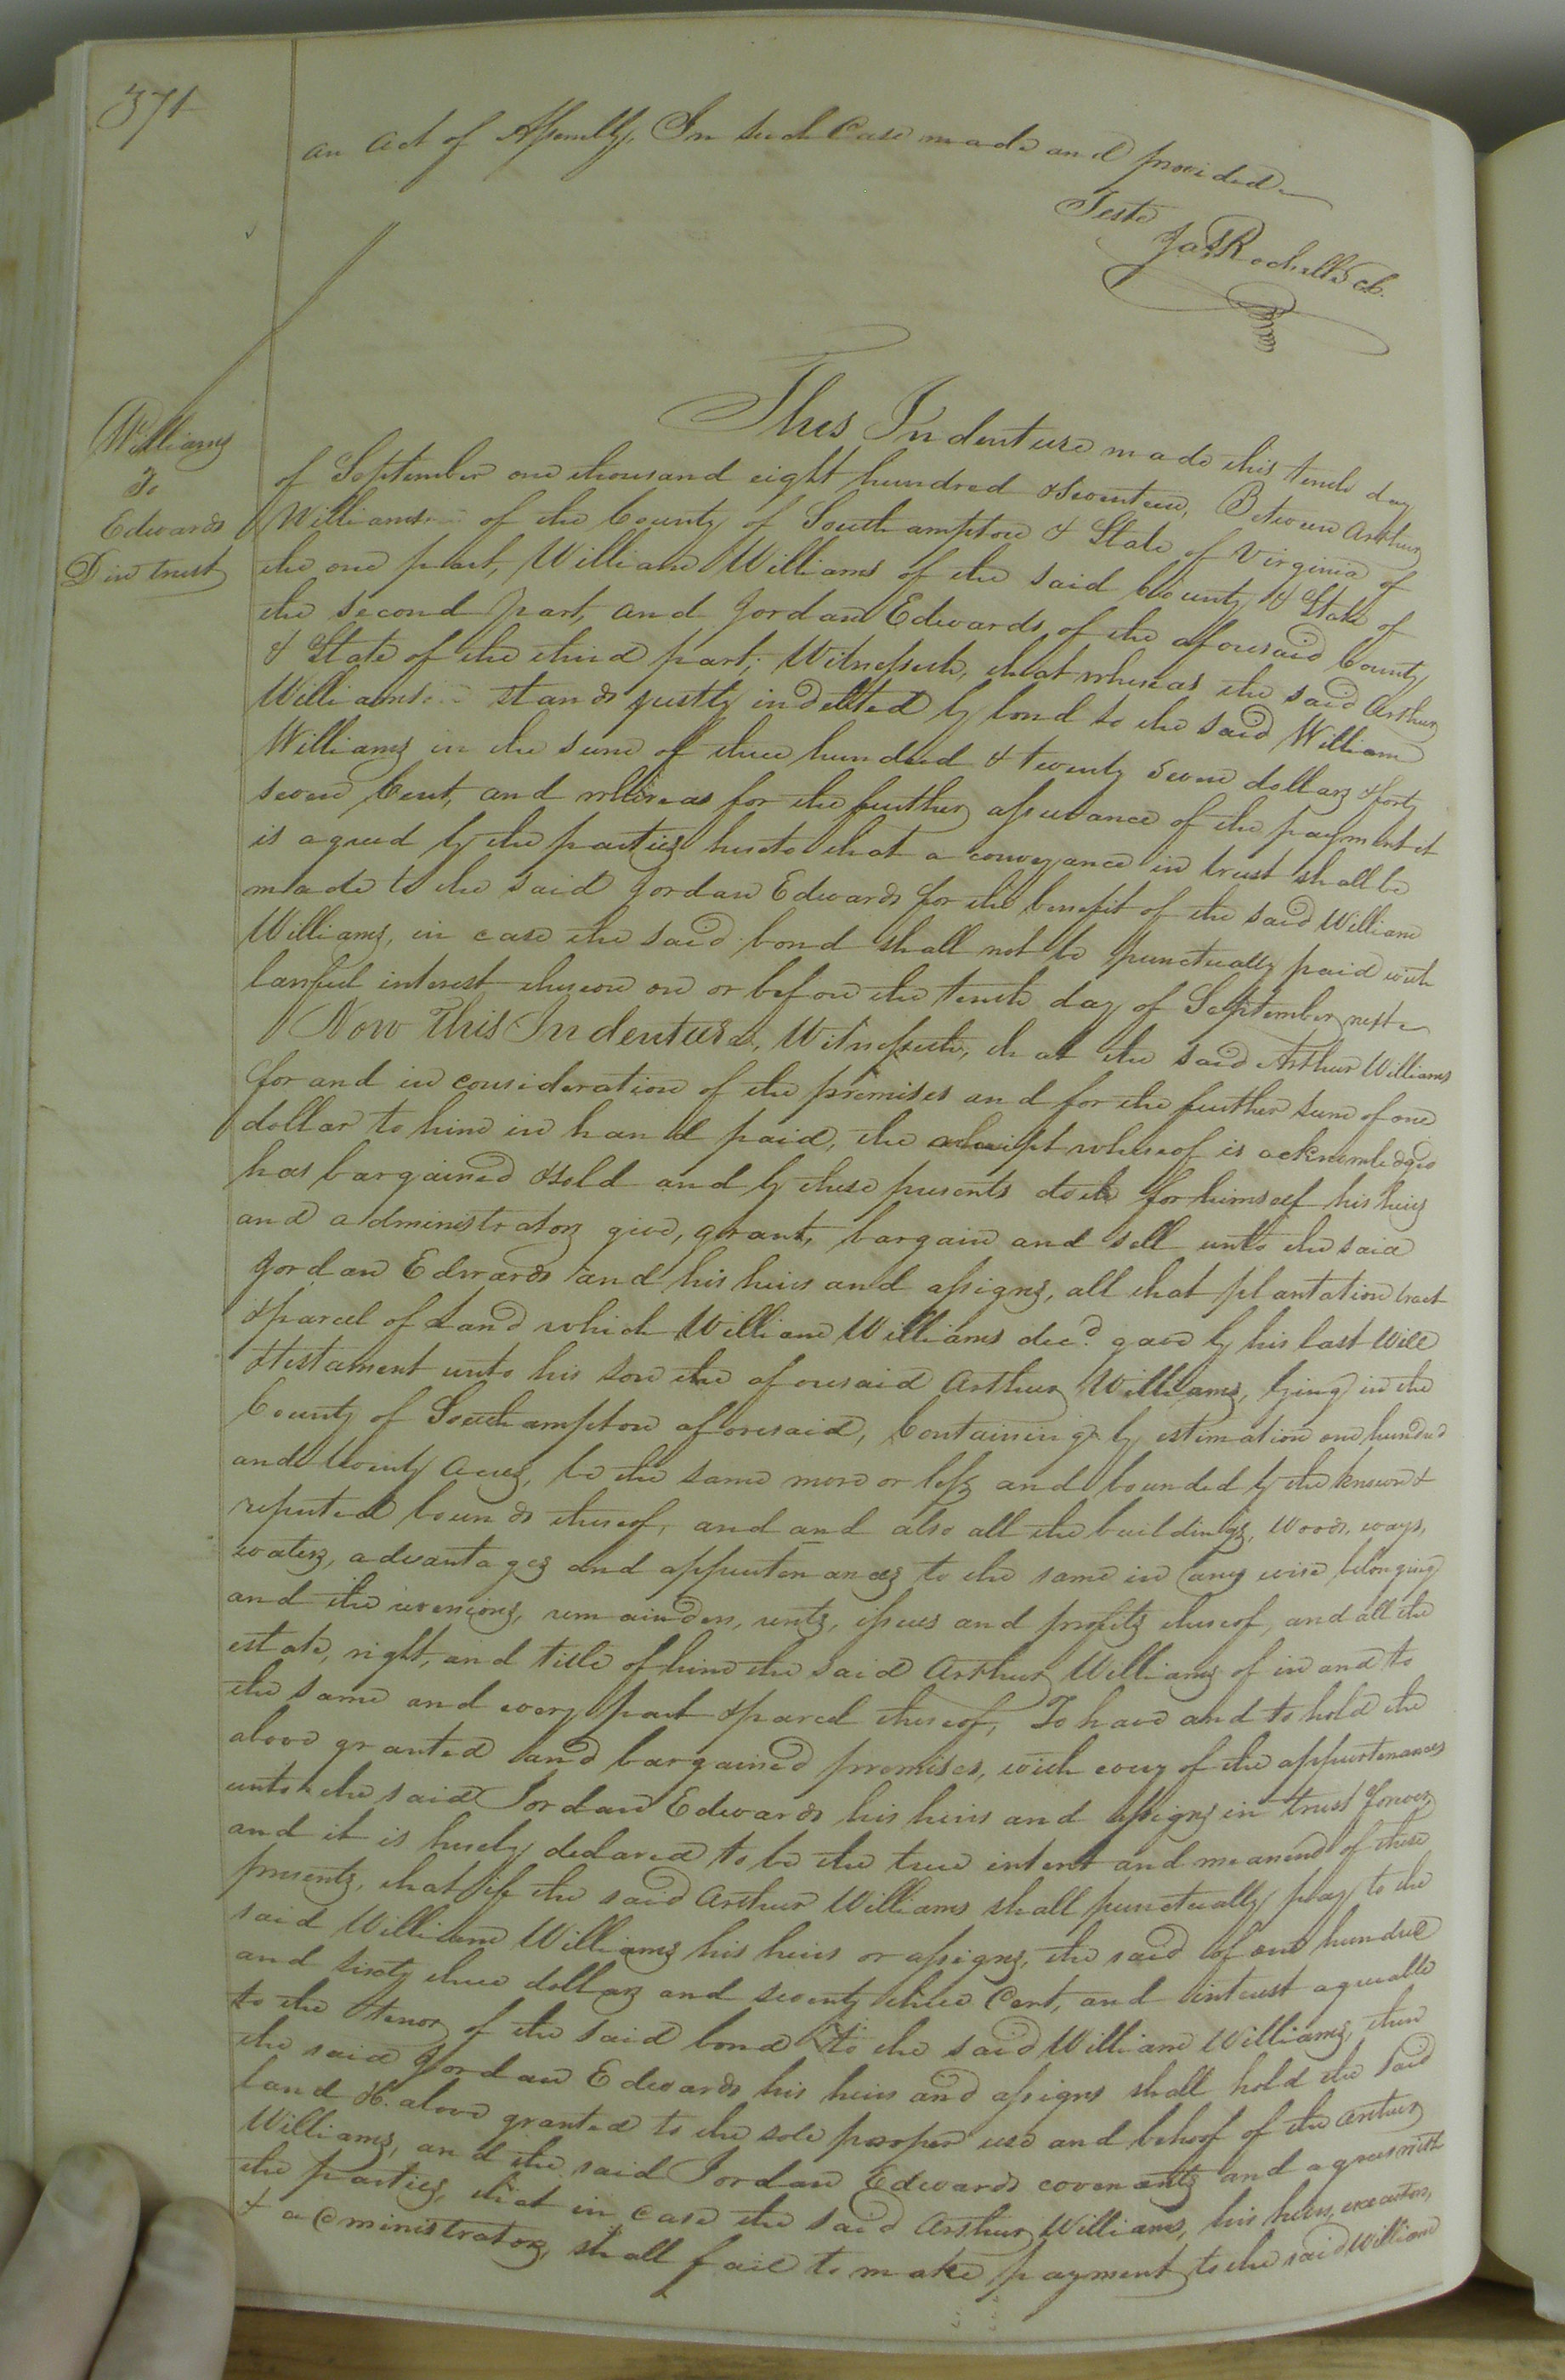 371
an act of Assembly, In such Case made and provided
Teste
Jas Rochelle Cl.
Williams
To
Edwards
D in trust
This Indenture made this tenth day
of September one thousand eight hundred & seventeen, Between Arthur
Williams of the County of Southampton & State of Virginia of
the one part, William Williams of the said County & State of
the second part, and Jordan Edwards of the aforesaid County
& State of the third part; Witnesseth, that whereas the said Arthur
Williams stands justly indebted by bond to the said William
Williams in the sum of three hundred & twenty seven dollars & forty
seven Cent, and whereas for the further assurance of the payment it
is agreed by the parties hereto that a conveyance in trust shall be
made to the said Jordan Edwards for the benefit of the said William
Williams, in case the said bond shall not be punctually paid with
lawful interest thereon on or before the tenth day of September next
Now This Indenture, Witnesseth, that the said Arthur Williams
for and in consideration of the premises and for the further sum of one
dollar to him in hand paid, the receipt whereof is acknowledged
has bargained & sold and by these presents doth for himself his heirs
and administrators give, grant, bargain and sell unto the said
Jordan Edwards and his heirs and assigns, all that plantation tract
& parcel of Land which William Williams decd. gave by his last Will
& testament unto his son the aforesaid Arthur Williams, lying in the
County of Southampton aforesaid, Containing by estimation one hundred
and twenty Acres, be the same more or less and bounded by the known &
reputed bounds thereof, and and also all the buildings, woods, ways,
waters, advantages and appurtenances to the same in any wise belonging
and the reversions, remainders, rents, issues and profits thereof, and all the
estate, right, and title of him the said Arthur Williams of in and to
the same and every part & parcel thereof, To have and to hold the
above granted and bargained premises, with every of the appurtenances
unto the said Jordan Edwards his heirs and assigns in trust forever
and it is hereby declared to be the true intent and meaneng of these
presents, that if the said Arthur Williams shall punctually pay to the
said William Williams his heirs or assigns, the said of one hundred
and sixty three dollars and seventy three Cent, and interest agreeable
to the tenor of the said bond to the said William Williams, then
the said Jordan Edwards his heirs and assigns shall hold the said
land &c. above granted to the sole proper use and behoof of the Arthur
Williams, and the said Jordan Edwards covenants and agrees with
the parties, that in case the said Arthur Williams, his heirs, executors,
& administrators, shall fail to make payment to the said William